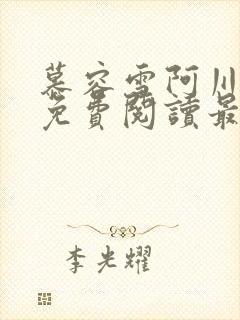 慕容雪阿川
免費閱讀最
李光耀